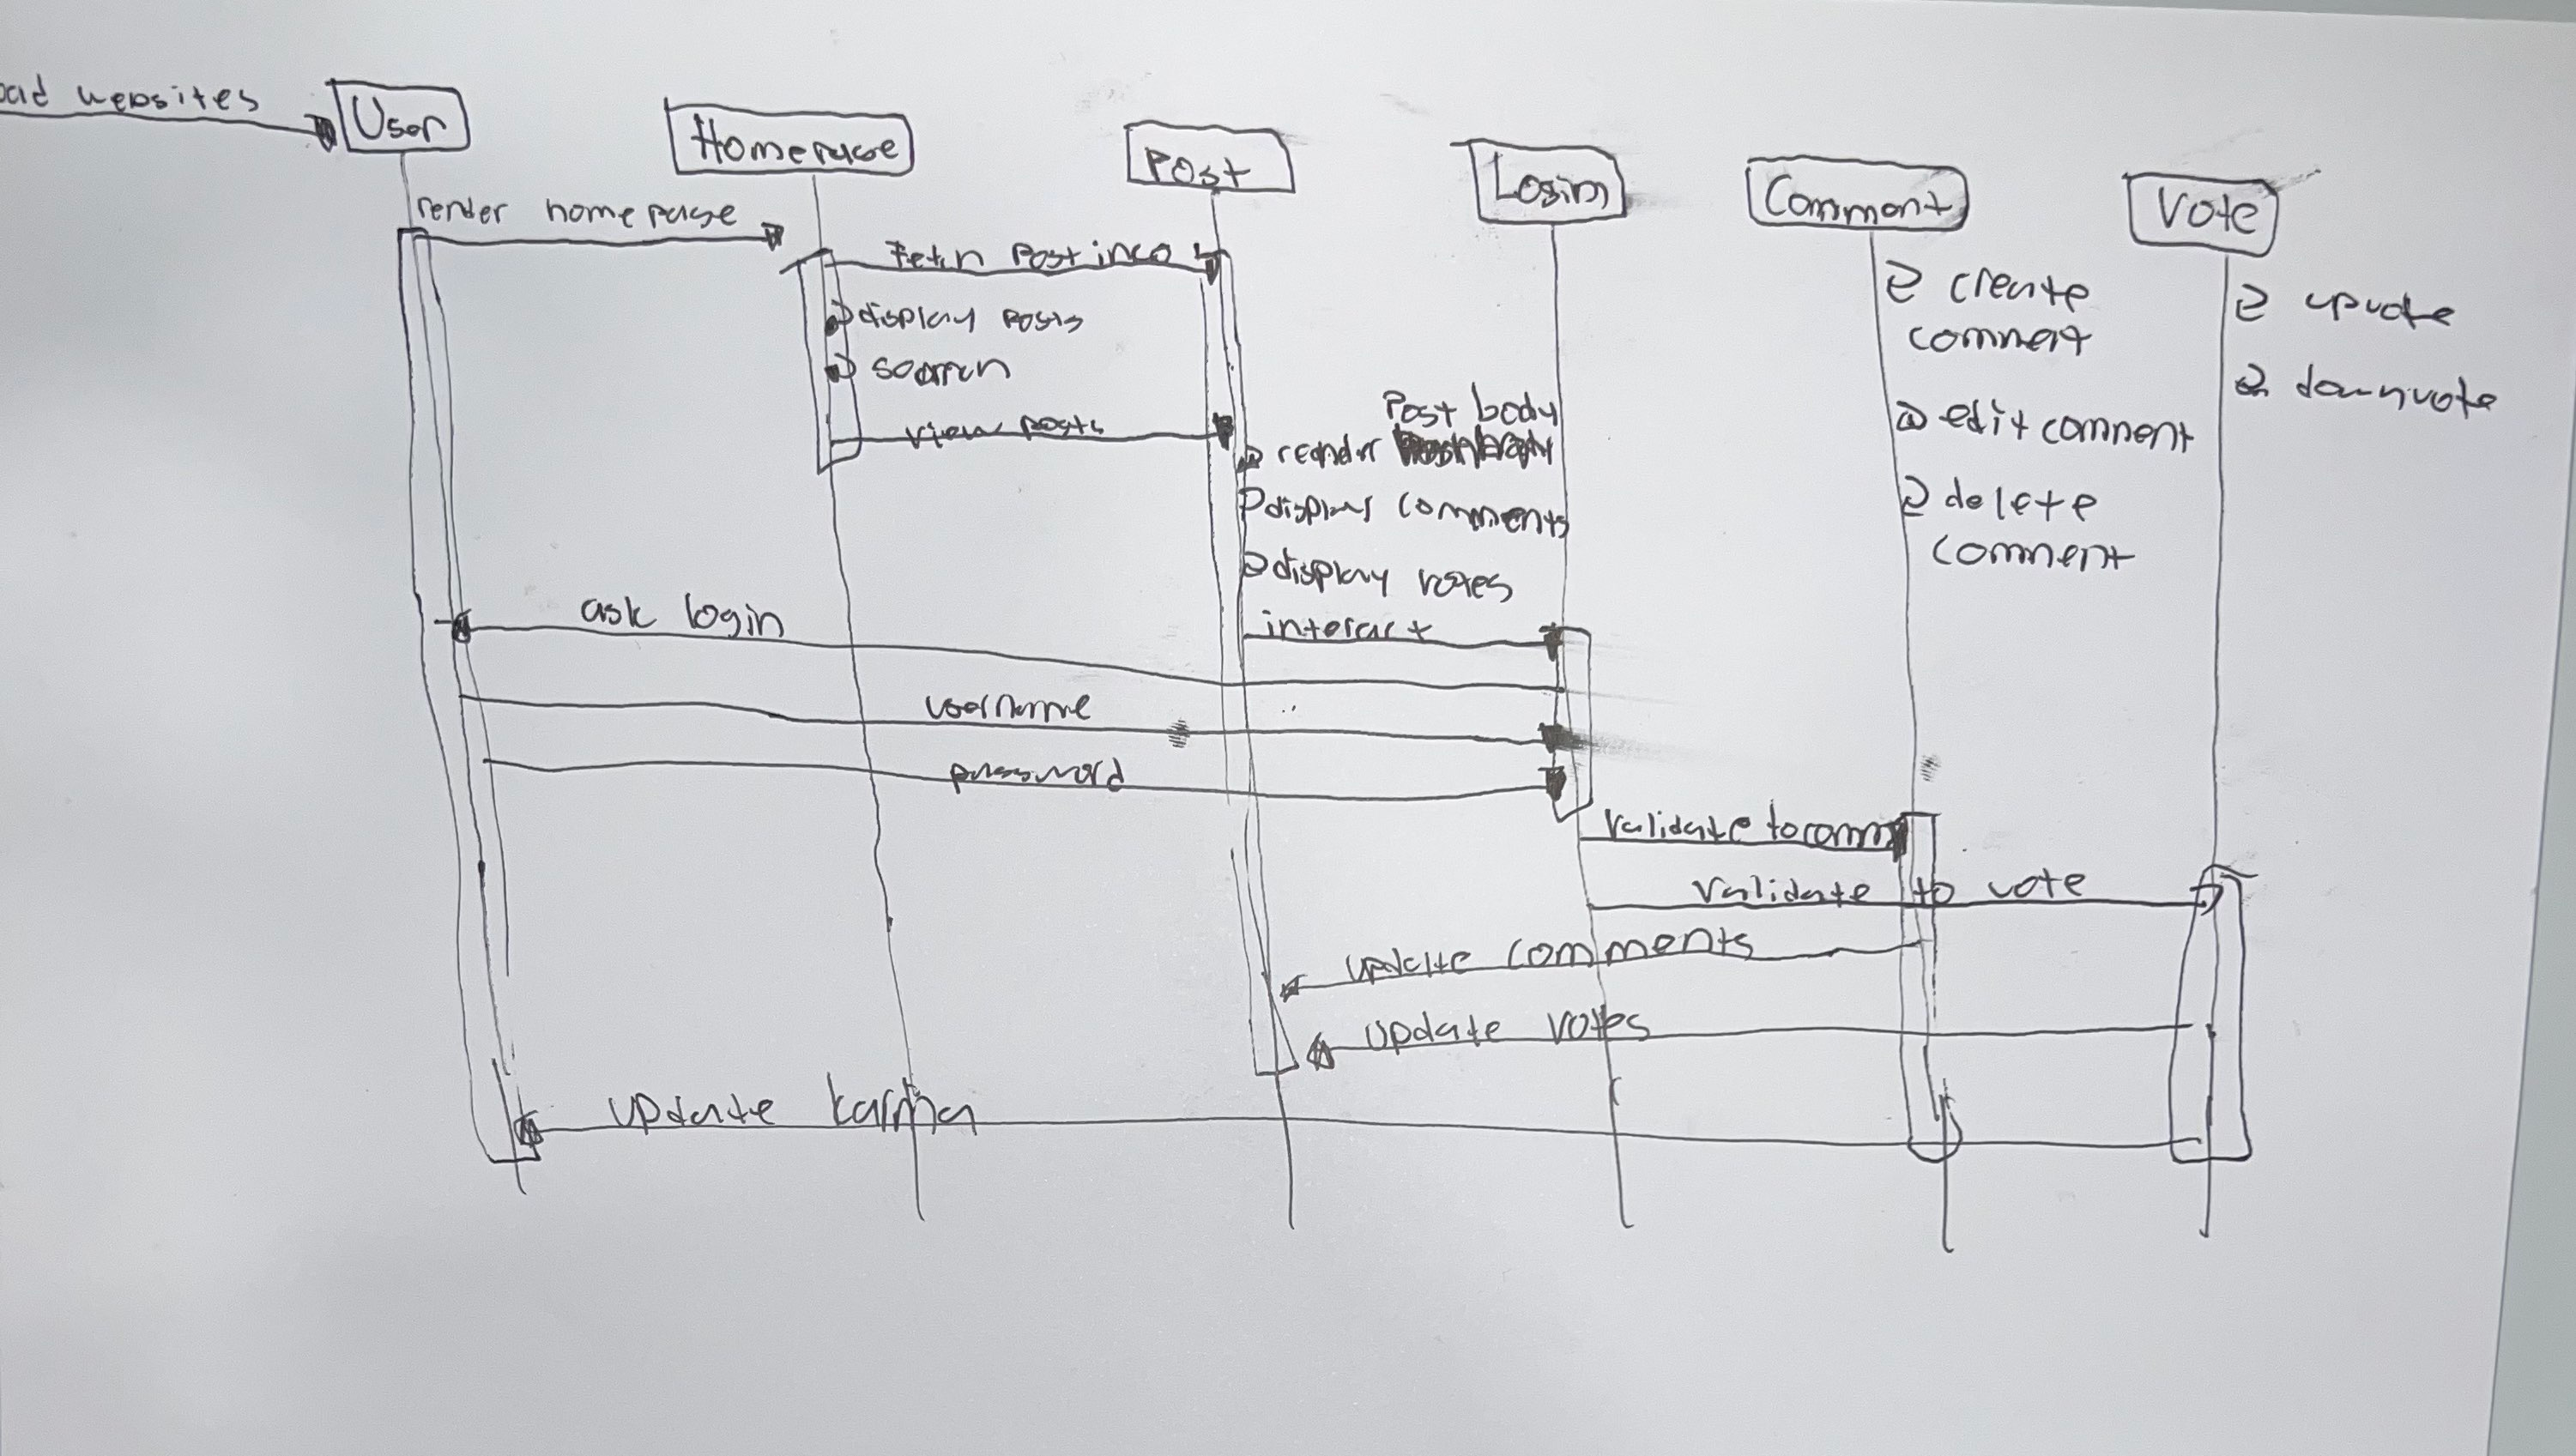 websites
User
Homepage
Post
Login
Comment
Vote
render homepage
Fetch Post info
display posts
search
view posts
Post body
render
display comments
display votes
interact
create
comment
edit comment
delete
comment
upvote
downvote
ask login
username
password
validate to comm
validate to vote
update comments
update votes
update karma